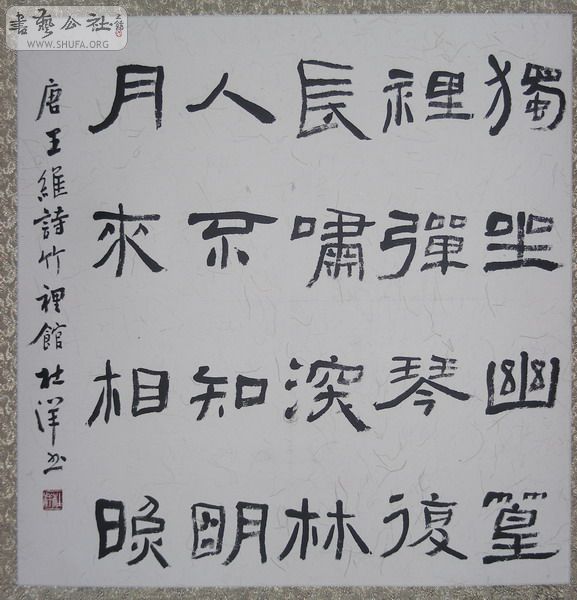 書藝公社
WWW.SHUFA.ORG
獨坐幽篁
裡彈琴復
長嘯深林
人不知明
月來相照
唐王維詩竹裡館 杜洋书